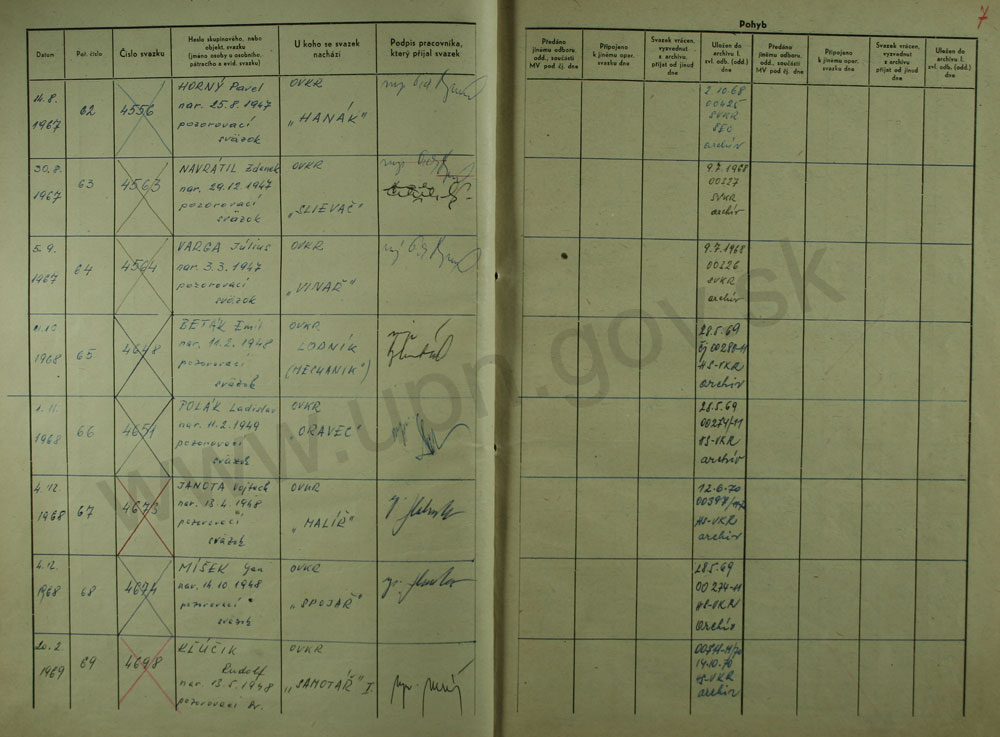 7
Pohyb
Datum
Poř. číslo
Číslo svazku
Heslo skupinového, nebo
objekt. svazku
(jméno osoby u osobního,
pátracího a evid. svazku)
U koho se svazek
nachází
Podpis pracovníka,
který přijal svazek
Předáno
jinému odboru,
odd., součásti
MV pod čj. dne
Připojeno
k jinému oper.
svazku dne
Svazek vrácen,
vyzvednut
z archivu,
přijat od jinud
dne
Uložen do
archivu I.
zvl. odb. (odd.)
dne
Předáno
jinému odboru,
odd., součásti
MV pod čj. dne
Připojeno
k jinému oper.
svazku dne
Svazek vrácen,
vyzvednut
z archivu,
přijat od jinud
dne
Uložen do
archivu I.
zvl. odb. (odd.)
dne
14.8.
1967
62
4556
HORNÝ Pavel
nar. 25.8.1947
pozorovací
sväzok
OVKR
„HANÁK"
2.10.68
00425
SVKR
archív
30.8.
1967
63
4563
NAVRÁTIL Zdenek
nar. 29.12.1947
pozorovací
sväzok
OVKR
„SLIEVAČ"
9.7.1968
00327
SVKR
archív
5.9.
1967
64
4564
VARGA Július
nar. 3.3.1947
pozorovací
sväzok
OVKR
„VINAŘ"
9.7.1968
00326
SVKR
archív
1968
65
4648
BETÁK Emil
nar. 11.2.1948
pozorovací
sväzok
OVKR
LODNÍK
(MECHANIK")
28.5.69
HS-VKR
archív
1.11.
1968
66
4651
POLÁK Ladislav
nar. 11.2.1949
pozorovací
sväzok
OVKR
ORAVEC"
28.5.69
00274/11
HS-VKR
archív
4.12.
1968
67
4673
JANOTA Vojtech
nar. 13.4.1948
pozorovací
sväzok
OVKR
„MALÍŘ"
12.6.70
HS-VKR
archív
4.12.
1968
68
4674
MÍŠEK Jan
nar. 14.10.1948
pozorovací
sväzok
OVKR
„SPOJAŘ"
28.5.69
00274-11
HS-VKR
archív
20.2.
1969
69
4698
KĽÚČIK
Rudolf
nar. 13.5.1948
pozorovací sv.
OVKR
„SAMOTÁŘ" I.
14.10.70
HS-VKR
archív
www.upn.gov.sk